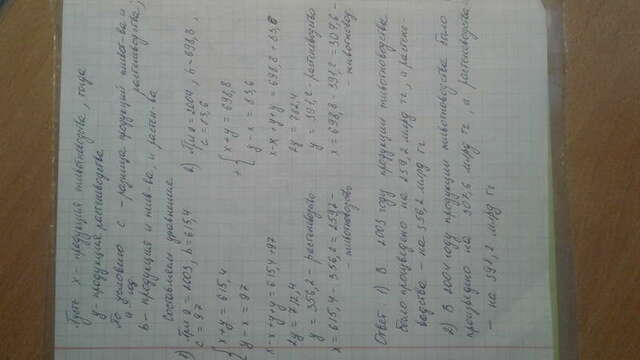 Пусть x - продукция животноводства, тогда
y - продукция растениеводства
По условию c - разница продукций живот-ва и
растениеводства,
и год
b - продукция и жив-ва, и растен-ва
Составляем уравнение
При a = 2003, b = 615,4
c = 97
x+y = 615,4
y-x = 97
x-x+y+y = 615,4+97
2y = 712,4
y = 356,2 - растеноводство
x = 615,4 - 356,2 = 259,2 -
- животноводство
При a = 2004, b = 698,8,
c = 83,6
x+y = 698,8
y-x = 83,6
x-x+y+y = 698,8+83,6
2y = 782,4
y = 391,2 - растеноводство
x = 698,8 - 391,2 = 307,6 -
- животновод.
Ответ: 1) В 2003 году продукции животноводства
было произведено на 259,2 млрд тг, а растено-
водства - на 356,2 млрд тг
2) В 2004 году продукции животноводства было
произведено на 307,6 млрд тг, а растеноводства-
- на 391,2 млрд тг